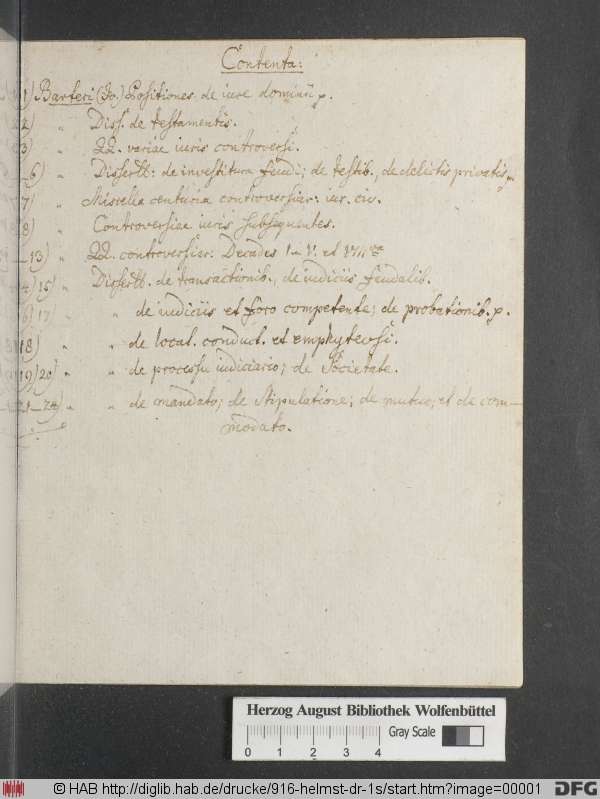 Contenta:
1) Barteri (Jo.) Positiones de iure dominii p.
2) " Diss. de testamentis.
3) " QQ. variae iuris controversi.
_6) " Dissertt: de investitura feudi; de testib., de delictis privatis p.
7) " Miscella centuria controversiar: iur. civ.
8) " Controversiae iuris subsequentes.
_13) " QQ. controversiar: Decades I _ V. et VIII
4) 15) " Dissertt. de transactionib., de iudiciis feudalib.
6) 17) " " de iudiciis et foro competente; de probationib. p.
18) " " de locat. conduct. et emphyteosi.
19) 20) " " de processu iudiciario; de Societate.
21_24) " " de mandato; de Stipulatione; de mutuo; et de com-
modato.
Herzog August Bibliothek Wolfenbüttel
Gray Scale
0 1 2 3 4
© HAB http://diglib.hab.de/drucke/916-helmst-dr-1s/start.htm?image=00001
DFG